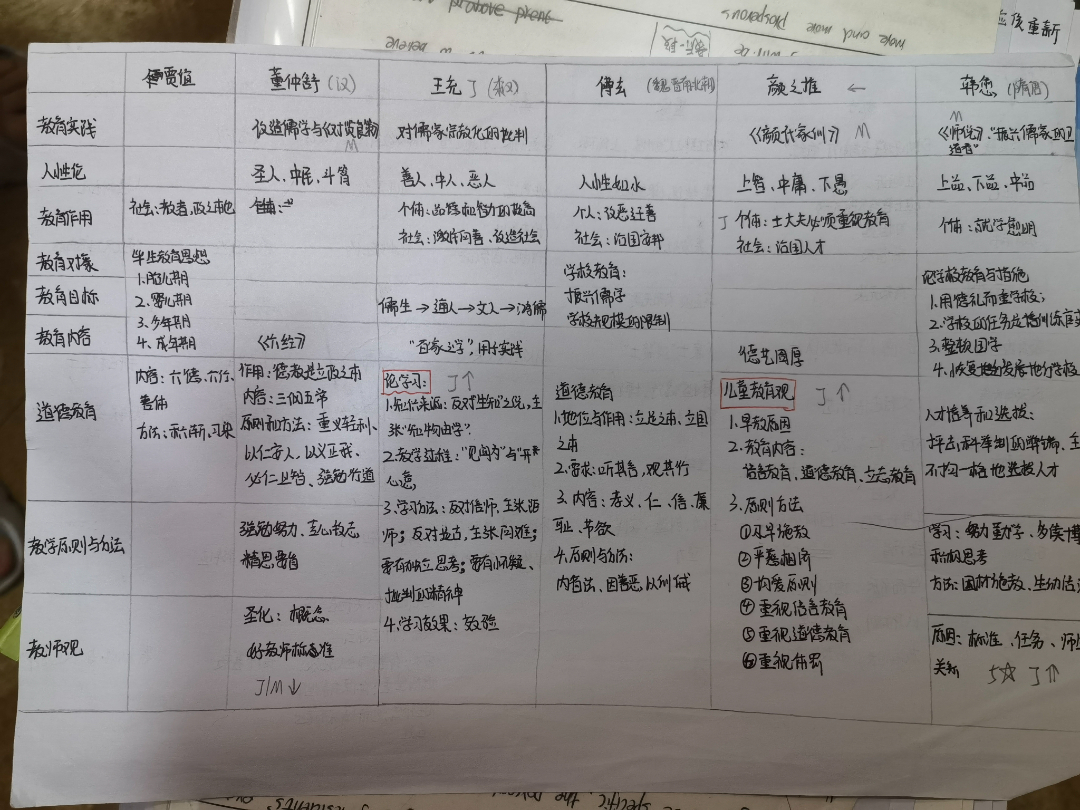 more and more prosperous
贾谊 董仲舒(汉) 王充 J (东汉) 傅玄 (魏晋南北朝) 颜之推 ← 韩愈 (隋唐)
教育实践 改造儒学与《对贤良策》 M 对儒家宗教化的批判 《颜氏家训》 M 《师说》, "振兴儒家的卫道者" M
人性论 圣人、中民、斗筲 善人、中人、恶人 人性如水 上智、中庸、下愚 上品、下品、中品
教育作用 社会:教者,政之本也 个体: 个体:品德和智力的提高 个人:改恶迁善 J 个体:士大夫必须重视教育 个体:就学愈明
社会:激阵问善、改造社会 社会:治国安邦 社会:治国人才
教育对象 毕生教育思想 学校教育: 论学校教育与措施
1.胎儿期 振兴儒学 1.用德礼而重学校;
教育目标 2.婴儿期 儒生→通人→文人→鸿儒 学校规模的限制 2.学校的任务是培训
3.少年期 3.整顿国学
教育内容 4.成年期 《六经》 "百家之学",用于实践 德艺周厚 4.恢复地方学校
道德教育
内容:六德、六行、
善体
方法:
作用:德教是立政之本
内容:三纲五常
原则和方法:重义轻利、
以仁安人,以义正我、
必仁且智、强勉行道
论学习: J↑
1.知识来源:反对"生知"之说,主
张"知物由学"
2.教学过程:"见闻为"与"开
心意,
3.学习方法:反对信师,主张距
师;反对 主张问难;
要有独立思考;要有怀疑、
批判的精神
4.学习效果:效验
道德教育
1.地位与作用:立足之本、立国
之本
2.要求:听其言,观其行
3.内容:孝义、仁、信、廉
耻、节欲
4.原则与方法:
内省法、因善恶从训诫
儿童教育观 J↑
1.早教原因
2.教育内容:
语言教育、道德教育、立志教育
3.原则方法
①及早施教
②严慈相济
③均爱原则
④重视语言教育
⑤重视道德教育
⑥重视体罚
人才培养和选拔:
抨击科举制的弊端,主
不拘一格地选拔人才
教学原则与方法
强勉努力、专心致志
精思要旨
学习:勤学、多读博
积极思考
方法:因材施教、生动活泼
教师观
圣化:概念
好教师标准
J/M↓
原因:标准、任务、师生
关系 5☆ J↑